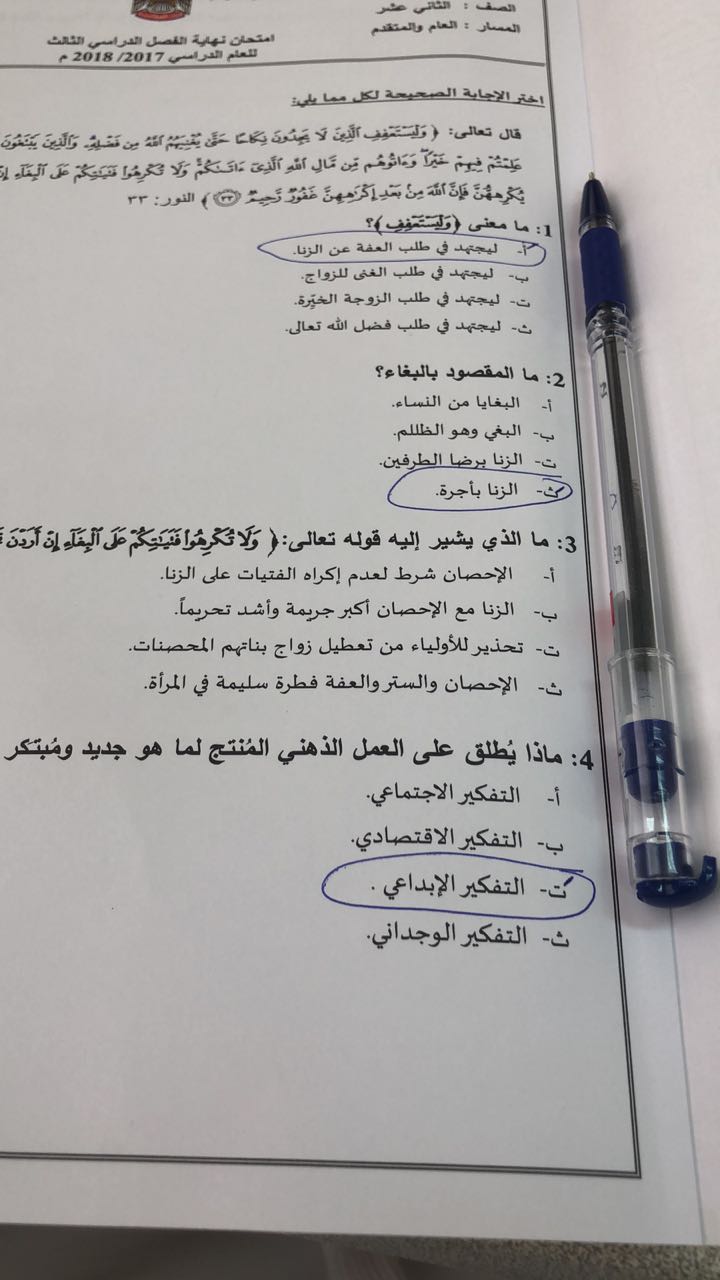 الصف : الثاني عشر
المسار : العام والمتقدم
امتحان نهاية الفصل الدراسي الثالث
للعام الدراسي 2017/ 2018 م
اختر الإجابة الصحيحة لكل مما يلي:
قال تعالى: ﴿ وَلْيَسْتَعْفِفِ الَّذِينَ لَا يَجِدُونَ نِكَاحًا حَتَّىٰ يُغْنِيَهُمُ اللَّهُ مِن فَضْلِهِ وَالَّذِينَ يَبْتَغُونَ
عَلِمْتُمْ فِيهِمْ خَيْرًا وَءَاتُوهُم مِّن مَّالِ اللَّهِ الَّذِي ءَاتَىٰكُمْ وَلَا تُكْرِهُوا فَتَيَٰتِكُمْ عَلَى الْبِغَاءِ إِنْ
يُكْرِههُّنَّ فَإِنَّ اللَّهَ مِن بَعْدِ إِكْرَٰهِهِنَّ غَفُورٌ رَّحِيمٌ ﴿٣٣﴾ ﴾ النور: ٣٣
1: ما معنى ﴿وَلْيَسْتَعْفِفِ﴾؟
أ- ليجتهد في طلب العفة عن الزنا.
ب- ليجتهد في طلب الغنى للزواج.
ت- ليجتهد في طلب الزوجة الخيِّرة.
ث- ليجتهد في طلب فضل الله تعالى.
2: ما المقصود بالبغاء؟
أ- البغايا من النساء.
ب- البغي وهو الظللم.
ت- الزنا برضا الطرفين.
ث- الزنا بأجرة.
3: ما الذي يشير إليه قوله تعالى:﴿ وَلَا تُكْرِهُوا فَتَيَٰتِكُمْ عَلَى الْبِغَاءِ إِنْ أَرَدْنَ
أ- الإحصان شرط لعدم إكراه الفتيات على الزنا.
ب- الزنا مع الإحصان أكبر جريمة وأشد تحريماً.
ت- تحذير للأولياء من تعطيل زواج بناتهم المحصنات.
ث- الإحصان والستر والعفة فطرة سليمة في المرأة.
4: ماذا يُطلق على العمل الذهني المُنتج لما هو جديد ومُبتكر
أ- التفكير الاجتماعي.
ب- التفكير الاقتصادي.
ت- التفكير الإبداعي .
ث- التفكير الوجداني.